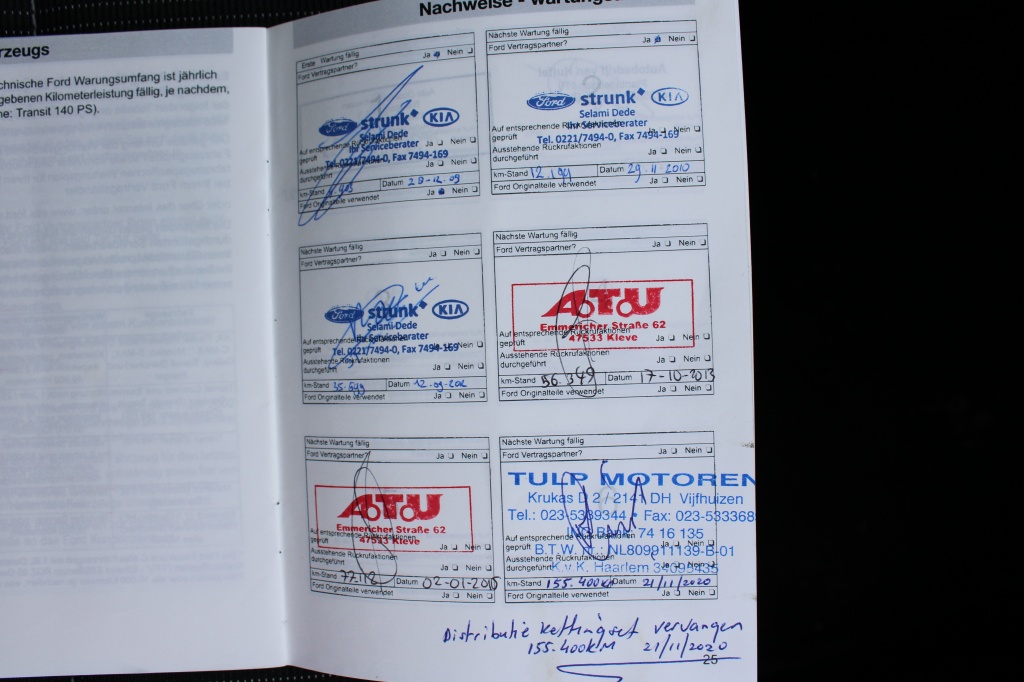 rzeugs
chnische Ford Warungsumfang ist jährlich
gebenen Kilometerleistung fällig, je nachdem,
ne: Transit 140 PS).
Nachweise -
Erste Wartung fällig
Ford Vertragspartner? Ja Nein
Ford strunk KIA
Selami Dede
Ihr Serviceberater
Tel. 0221/7494-0, Fax 7494-169
Auf entsprechende Rückrufaktionen
geprüft Ja Nein
Ausstehende Rückrufaktionen
durchgeführt Ja Nein
km-Stand Datum 28-12.09
Ford Originalteile verwendet Ja Nein
Nächste Wartung fällig
Ford Vertragspartner? Ja Nein
Ford strunk KIA
Selami Dede
Ihr Serviceberater
Tel. 0221/7494-0, Fax 7494-169
Auf entsprechende Rückrufaktionen
geprüft Ja Nein
Ausstehende Rückrufaktionen
durchgeführt Ja Nein
km-Stand 12.199 Datum 29.11.2010
Ford Originalteile verwendet Ja Nein
Nächste Wartung fällig
Ford Vertragspartner? Ja Nein
Ford strunk KIA
Selami Dede
Ihr Serviceberater
Tel. 0221/7494-0, Fax 7494-169
Auf entsprechende Rückrufaktionen
geprüft Ja Nein
Ausstehende Rückrufaktionen
durchgeführt Ja Nein
km-Stand Datum 12-09-2012
Ford Originalteile verwendet Ja Nein
Nächste Wartung fällig
Ford Vertragspartner? Ja Nein
ATU
Emmericher Straße 62
47533 Kleve
Auf entsprechende Rückrufaktionen
geprüft Ja Nein
Ausstehende Rückrufaktionen
durchgeführt Ja Nein
km-Stand 56.349 Datum 17-10-2013
Ford Originalteile verwendet Ja Nein
Nächste Wartung fällig
Ford Vertragspartner? Ja Nein
ATU
Emmericher Straße 62
47533 Kleve
Auf entsprechende Rückrufaktionen
geprüft Ja Nein
Ausstehende Rückrufaktionen
durchgeführt Ja Nein
km-Stand 77112 Datum 02-01-2015
Ford Originalteile verwendet Ja Nein
Nächste Wartung fällig
Ford Vertragspartner? Ja Nein
TULP MOTOREN
Krukas D 2 / 2141 DH Vijfhuizen
Tel.: 023-5339344 • Fax: 023-533368
ING Bank 74 16 135
B.T.W. nr.: NL809911139-B-01
K.v.K. Haarlem 34099435
Auf entsprechende Rückrufaktionen
geprüft Ja Nein
Ausstehende Rückrufaktionen
durchgeführt Ja Nein
km-Stand 155.400KM Datum 21/11/2020
Ford Originalteile verwendet Ja Nein
Distributie kettingset vervangen
155.400KM 21/11/2020
25